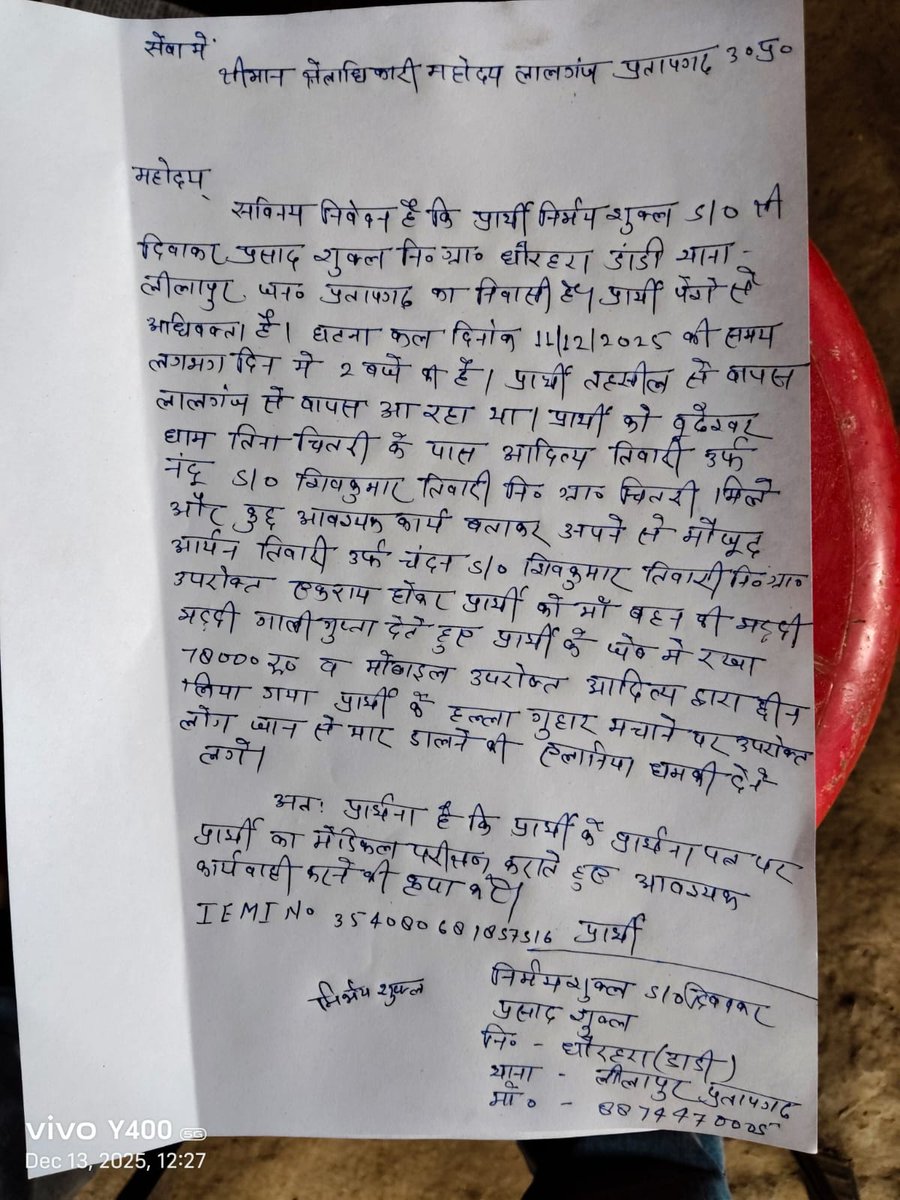 सेवा में
श्रीमान क्षेत्राधिकारी महोदय लालगंज प्रतापगढ़ उ०प्र०
महोदय
सविनय निवेदन है कि प्रार्थी निर्भय शुक्ल S/O श्री
दिवाकर प्रसाद शुक्ल नि० ग्रा० धौरहरा डांडी थाना -
लीलापुर जन० प्रतापगढ़ का निवासी है। प्रार्थी पेशे से
अधिवक्ता है। घटना कल दिनांक 11/12/2025 की समय
लगभग दिन में 2 बजे की है। प्रार्थी तहसील से वापस
लालगंज से वापस आ रहा था। प्रार्थी को बूढेश्वर
धाम तिना चितरी के पास आदित्य तिवारी उर्फ
नंदू S/O शिवकुमार तिवारी नि० ग्रा० चितरी मिले
और कुछ आवश्यक कार्य बताकर अपने से मौजूद
आर्यन तिवारी उर्फ चंदन S/O शिवकुमार तिवारी नि० ग्रा०
उपरोक्त एकराय होकर प्रार्थी को माँ बहन की भद्दी
भद्दी गाली गुप्ता देते हुए प्रार्थी के जेब में रखा
78000 रू० व मोबाइल उपरोक्त आदित्य द्वारा छीन
लिया गया प्रार्थी के हल्ला गुहार मचाने पर उपरोक्त
लोग जान से मार डालने की एलानिया धमकी देने
लगे।
अतः प्रार्थना है कि प्रार्थी के प्रार्थना पत्र पर
प्रार्थी का मेडिकल परीक्षण कराते हुए आवश्यक
कार्यवाही करने की कृपा करें।
IEMI No 354080681857516 प्रार्थी
निर्भय शुक्ल
निर्भय शुक्ल S/O दिवाकर
प्रसाद शुक्ल
नि० - धौरहरा (डांडी)
थाना - लीलापुर प्रतापगढ़
मो० - 8874470005
vivo Y400 5G
Dec 13, 2025, 12:27